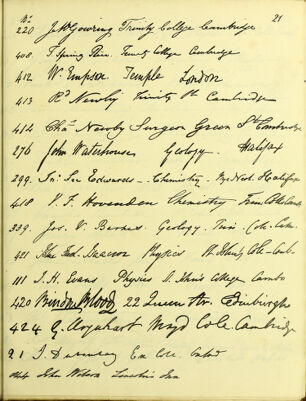 No. 21
220 J. W. Gowring Trinity College Cambridge
408 T. Spring Rice. Trinity College Cambridge
412 W. Empson Temple London
413 Rd Newby Trinity St. Cambridge
414 Chas Newby Surgeon Green St Cambridge
276 John Waterhouse Geology Halifax
299. Lee Edwards - Chemistry - Halifax
418 V. F. Hovenden Chemistry Trin. Coll. Camb.
339. Jos. V. Geology. Trin. Col. Cam.
421 John Physics St. John's Col. Camb.
111 J. H. Evans Physics St. John's College Camb
420 Bindon Blood 22 Queen Str. Edinburgh
424 Urquhart Magd Cole. Cambridge
91 J. Em Coll. Camb
John Wilson Lincoln's Inn